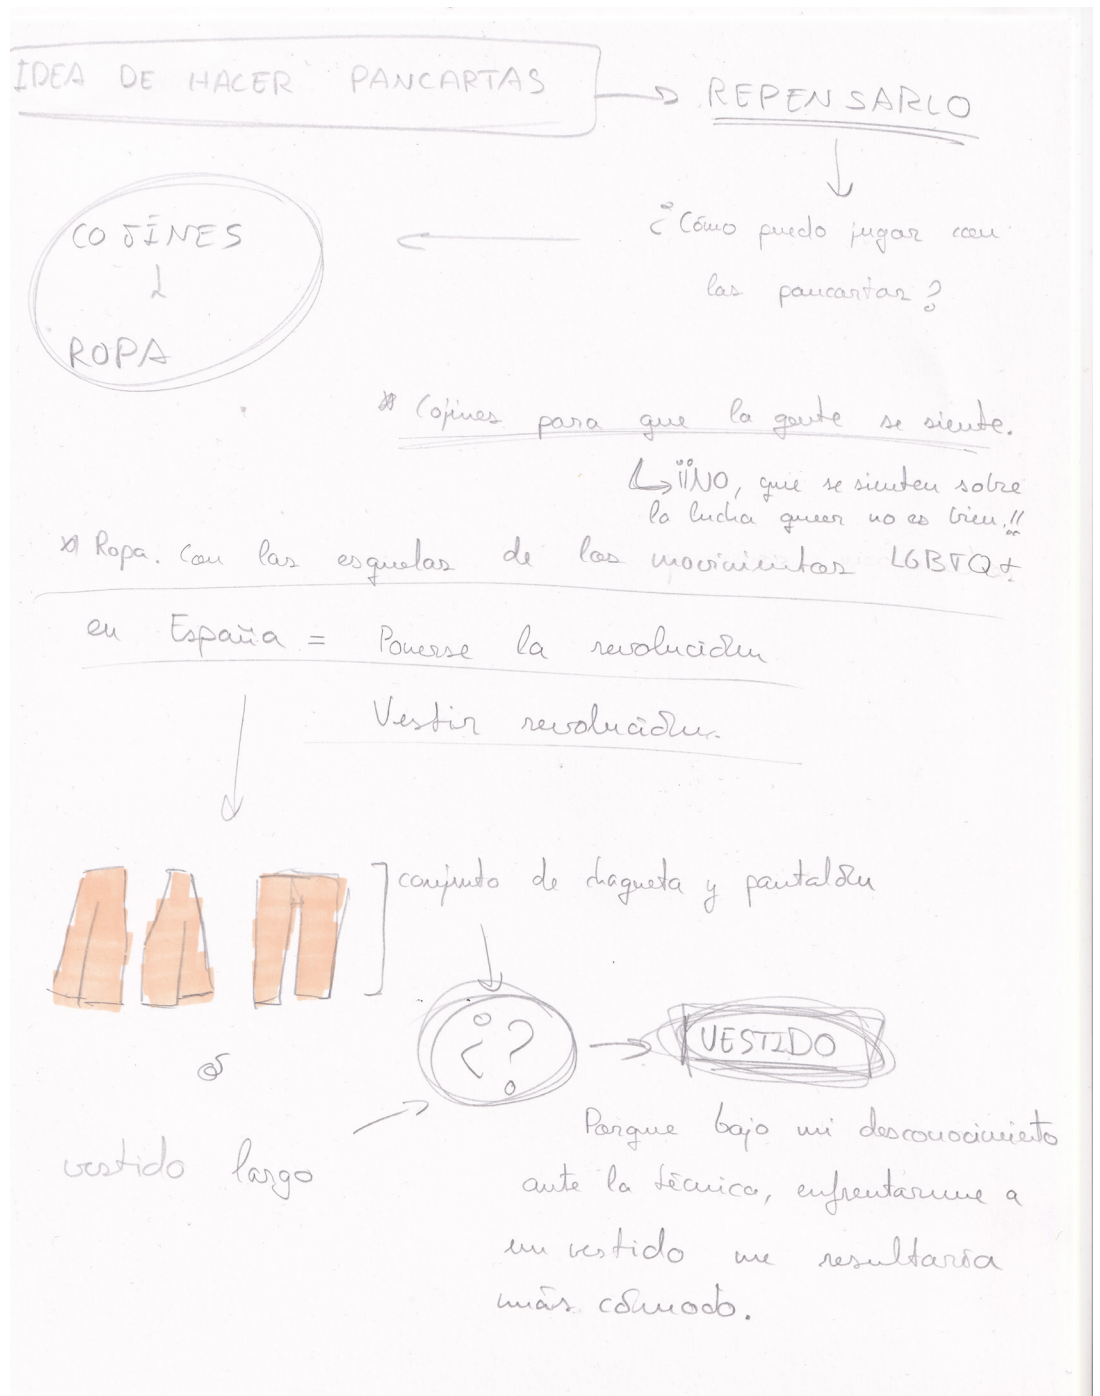 IDEA DE HACER PANCARTAS
REPENSARLO
¿Cómo puedo jugar con
las pancartas?
COJINES
ROPA
* Cojines para que la gente se siente.
¡¡NO, que se sienten sobre
la lucha queer no es bien!!
* Ropa. Con las esquelas de los movimientos LGBTQ+
en España = Ponerse la revolución
Vestir revolución.
conjunto de chaqueta y pantalón
¿?
VESTIDO
ó
vestido largo
Porque bajo mi desconocimiento
ante la técnica, enfrentarme a
un vestido me resultaría
más cómodo.